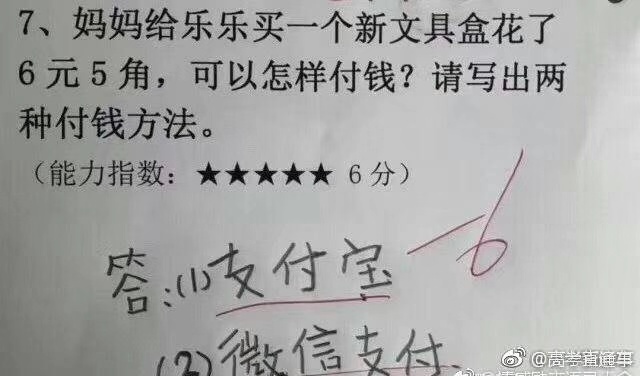 7、妈妈给乐乐买一个新文具盒花了
6元5角，可以怎样付钱？请写出两
种付钱方法。
（能力指数：★★★★★ 6分）
答：(1)支付宝 -6
(2)微信支付.
@高考直通车